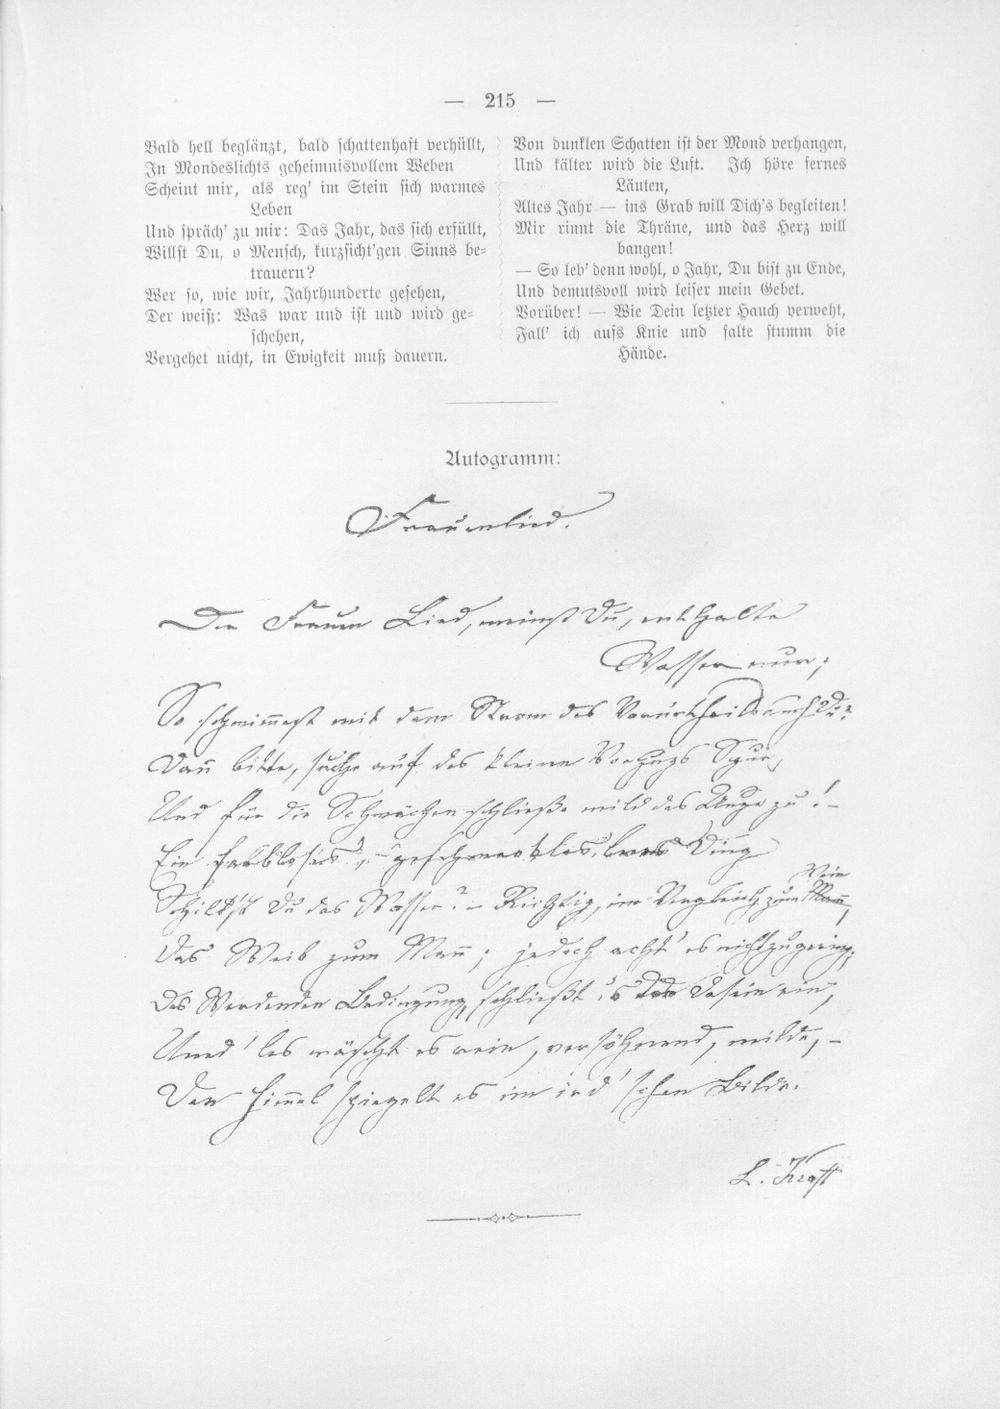 — 215 —
Bald hell beglänzt, bald schattenhaft verhüllt,
In Mondeslichts geheimnisvollem Weben
Scheint mir, als reg' im Stein sich warmes
Leben
Und spräch' zu mir: Das Jahr, das sich erfüllt,
Willst Du, o Mensch, kurzsicht'gen Sinns be-
trauern?
Wer so, wie wir, Jahrhunderte gesehen,
Der weiß: Was war und ist und wird ge-
schehen,
Vergehet nicht, in Ewigkeit muß dauern.
Von dunklen Schatten ist der Mond verhangen,
Und kälter wird die Luft. Ich höre fernes
Läuten,
Altes Jahr — ins Grab will Dich's begleiten!
Mir rinnt die Thräne, und das Herz will
bangen!
— So leb' denn wohl, o Jahr, Du bist zu Ende,
Und demutsvoll wird leiser mein Gebet.
Vorüber! — Wie Dein letzter Hauch verweht,
Fall' ich aufs Knie und falte stumm die
Hände.
Autogramm:
Frauenlied.
Der Frauen Lied, meinst Du, enthalte
Wasser nur;
So schwimmest mit dem Strom des Vorurtheils auch Du?
Dann bitte, suche auf des kleinen Vorzugs Spur,
Und für die Schwächen schließe mild das Auge zu! –
Ein farbloses, – geschmackloses, Ding
Schilt'st Du das Wasser? – Richtig, im Vergleich zum Wein,
Das Weib zum Mann; jedoch acht' es nicht zu gering;
Des Werdenden Bedingung schließt's Dasein ein,
Und wäscht es rein, versöhnend, milde, –
Der Himmel spiegelt es im ird'schen Bilde.
L. Kraft